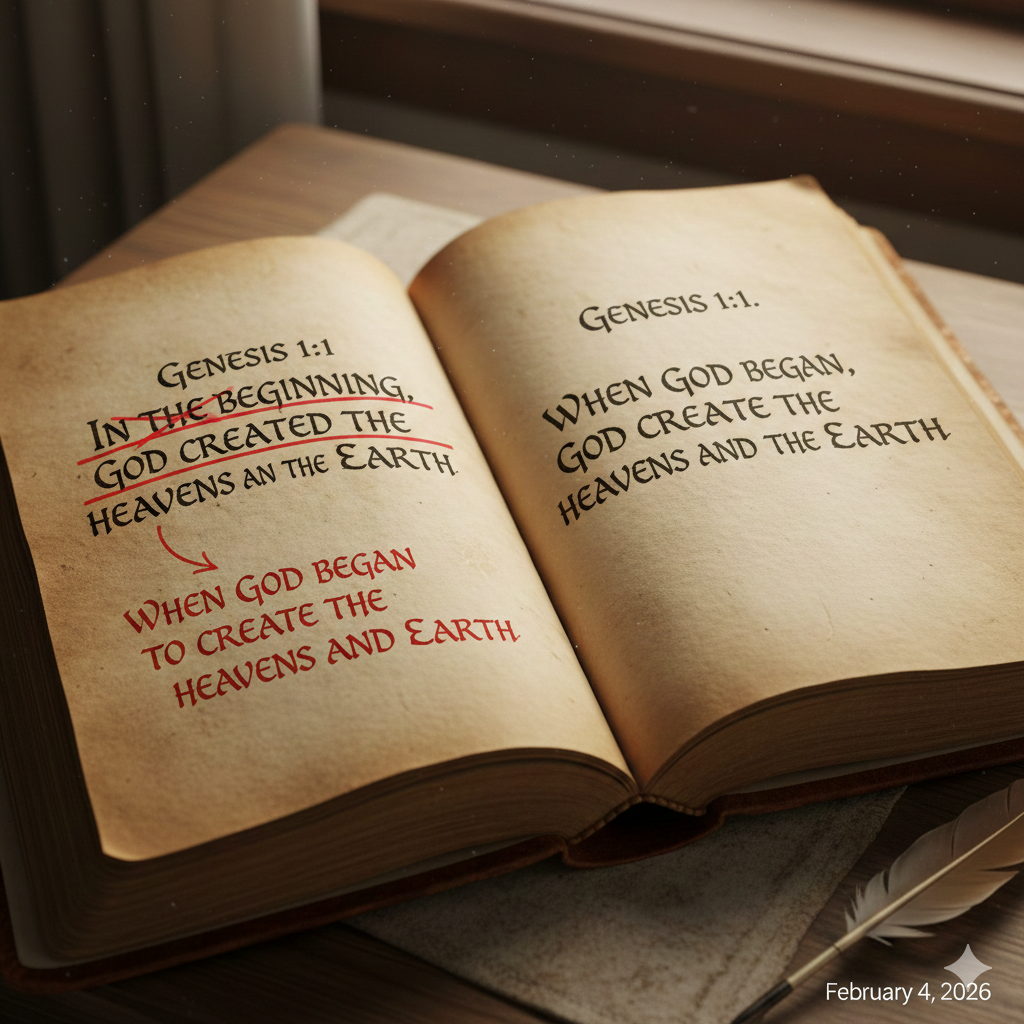 Genesis 1:1
In the beginning,
God created the
heavens an the Earth.
When God began
to create the
heavens and Earth.
Genesis 1:1.
When God began,
God create the
heavens and the Earth.
February 4, 2026